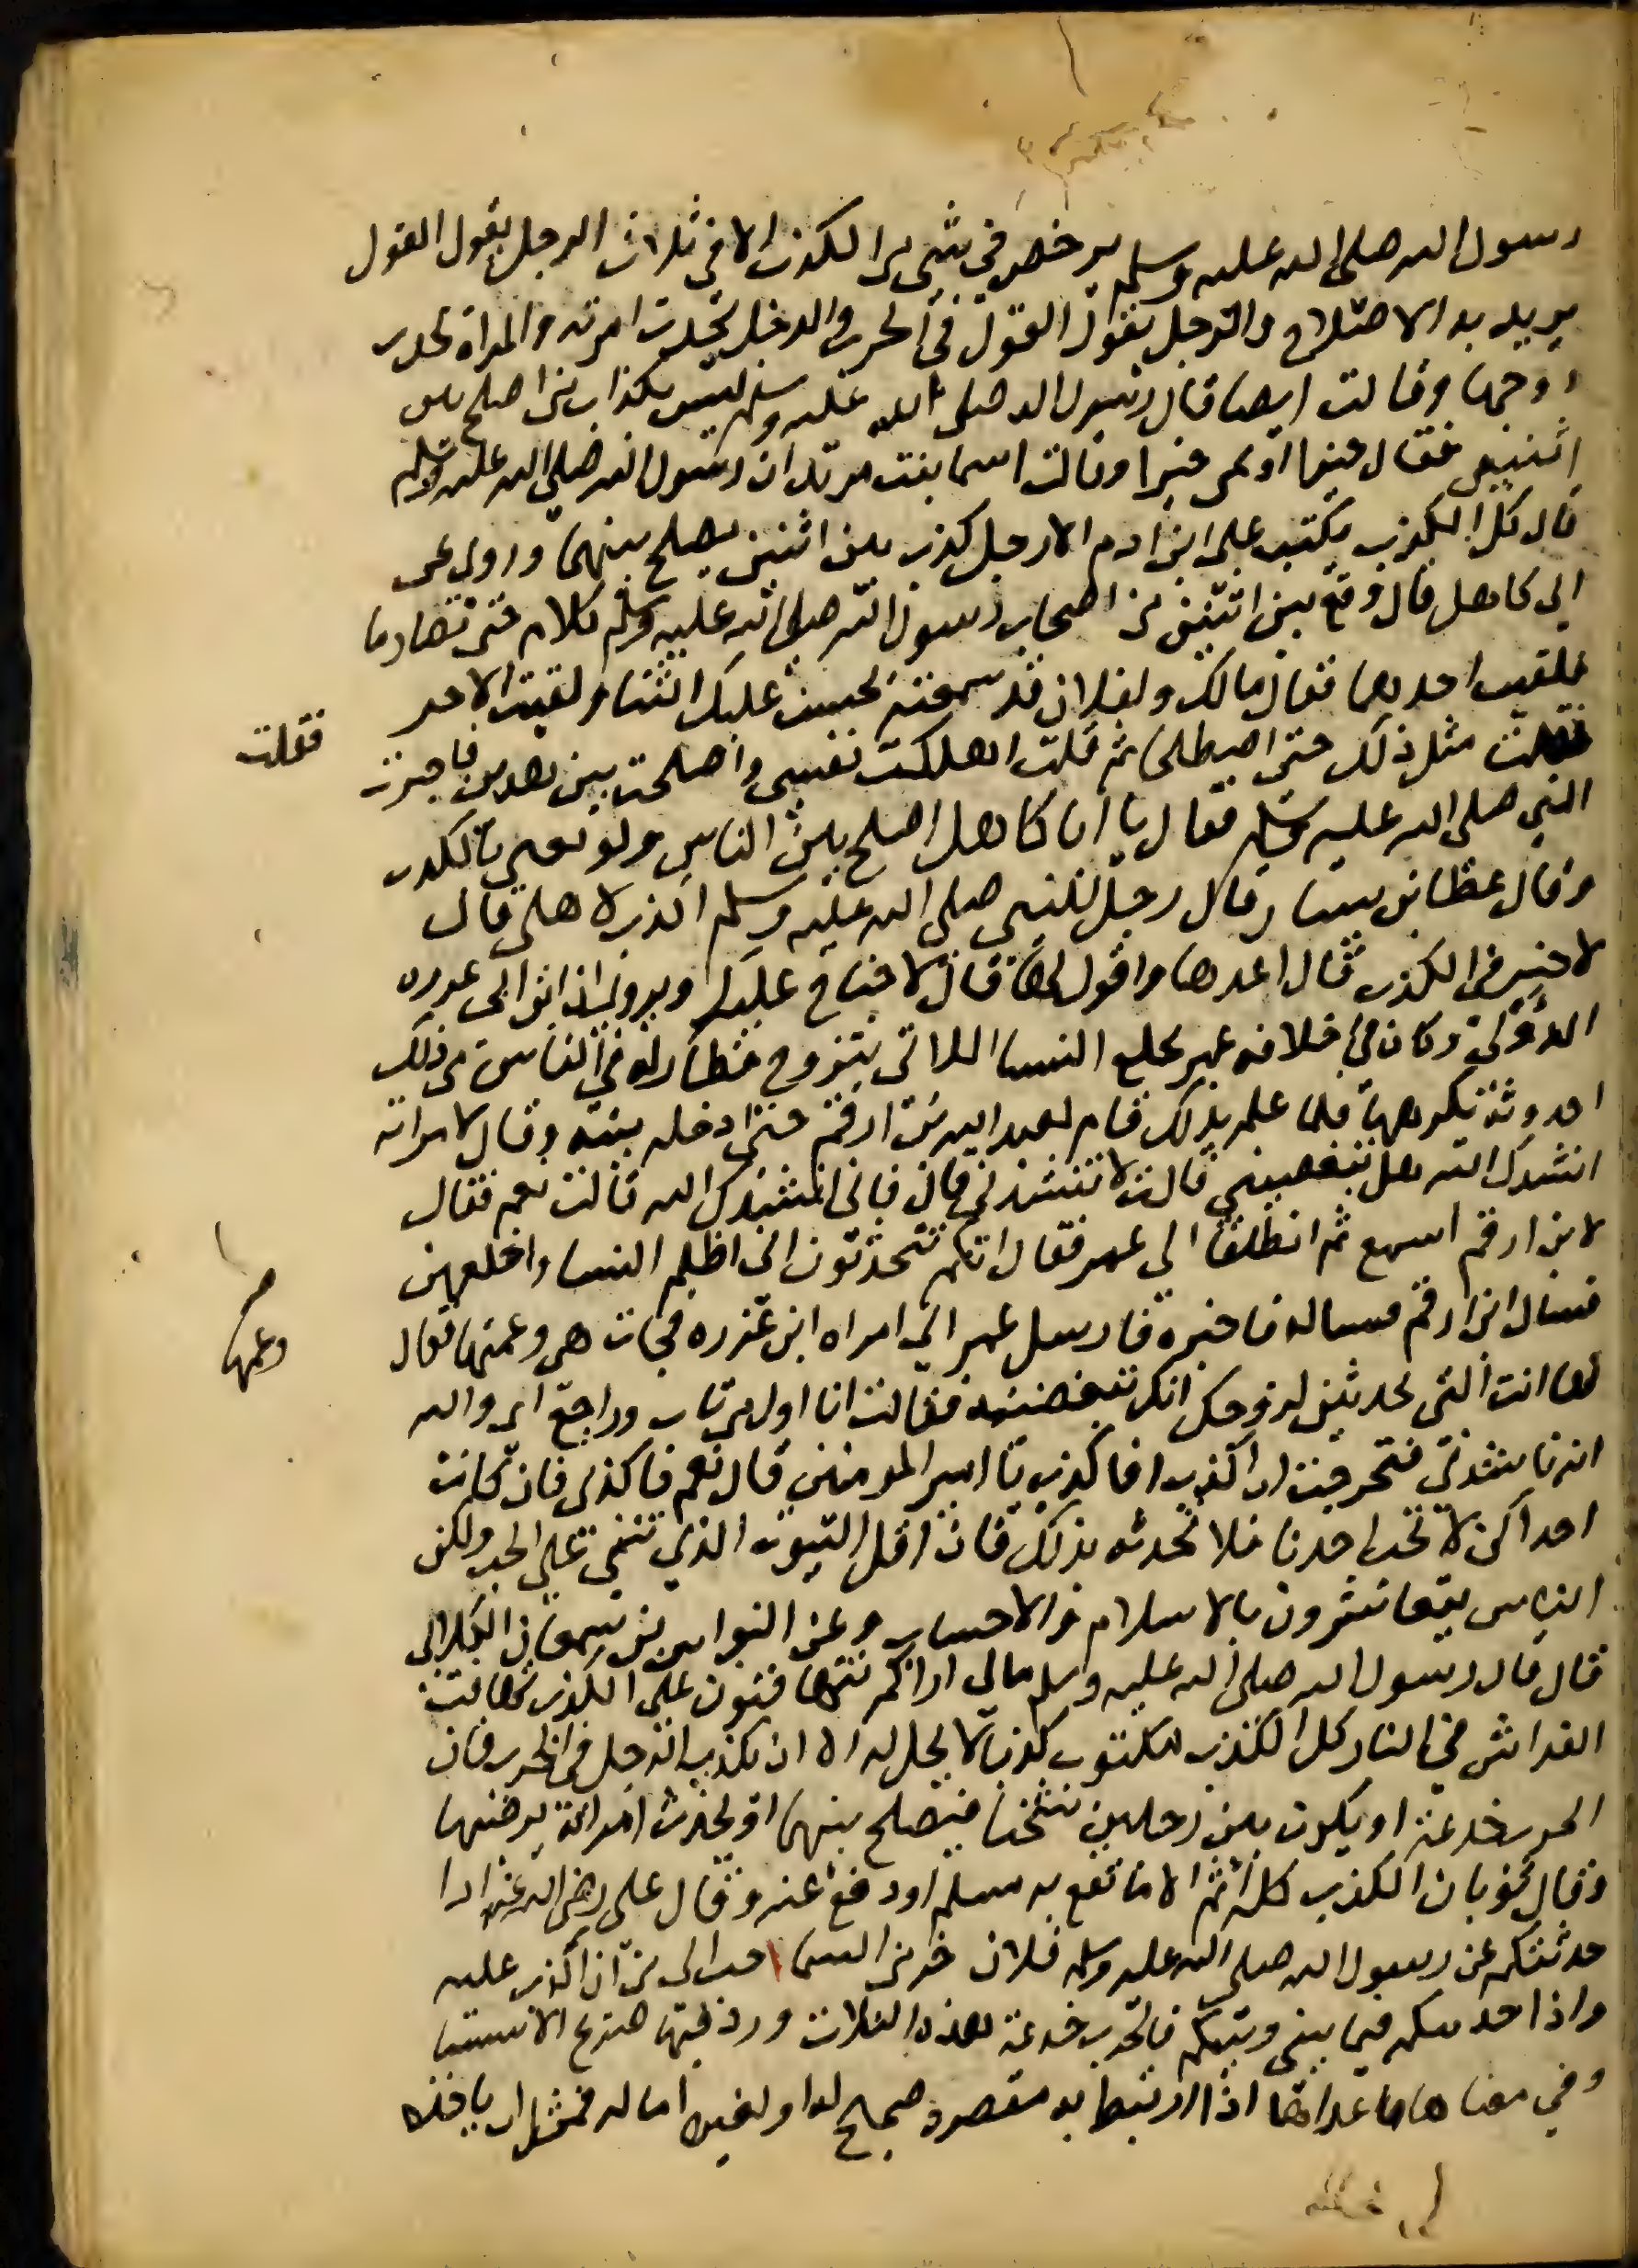 رسول الله صلى الله عليه وسلم يرخص في شي من الكذب الا في ثلاث الرجل يقول القول
يريد به الاصلاح والرجل يقول القول في الحرب والرجل يحدث امرته والمراة تحدث
زوجها وقالت ايضا قال رسول الله صلى الله عليه وسلم ليس بكذاب من اصلح بين
اثنين فقال خيرا او نمى خيرا وقالت اسما بنت يزيد ان رسول الله صلى الله عليه وسلم
قال كل الكذب يكتب على ابن ادم الا رجل كذب بين اثنين يصلح بينهما وروي عن
ابي كاهل قال وقع بين اثنين من اصحاب رسول الله صلى الله عليه وسلم كلام حتى تصارما
فلقيت احدهما فقال مالك ولفلان قد سمعته يحسن عليك الثنا ولقيت الاخر
فقلت
فقلت مثل ذلك حتى اصطلحا ثم قلت اهلكت نفسي واصلحت بين هذين فاخبرت
النبي صلى الله عليه وسلم فقال يا ابا كاهل اصلح بين الناس ولو يعني بالكذب
وقال عطا بن يسار قال رجل للنبي صلى الله عليه وسلم اكذب لاهلي قال
لا خير في الكذب قال اعدها واقول لها قال لا جناح عليك ويروى ان ابن ابي عذره
الدؤلي وكان في خلافه عمر يخلع النسا اللاتي يتزوج فطار له في الناس من ذلك
احدوثة تكرهها فلما علم بذلك قام لعبد الله بن ارقم حتى ادخله بيته وقال لامراته
انشدك الله هل تبغضيني قالت لا تنشدني قال فاني انشدك الله قالت نعم فقال
لابن ارقم اسمع ثم انطلقا الى عمر فقال انكم تتحدثون اني اظلم النسا واخلعهن
فسال ابن ارقم فساله فاخبره فارسل عمر الى امراه ابن عذره فجات هي وعمتها فقال
وعمها
لها انت التي تحدثين لزوجك انك تبغضينه فقالت انا اول من تاب وراجع امر الله
انه ناشدني فتحرجت ان اكذب افاكذب يا امير المومنين قال نعم فاكذبي فان كانت
احداكن لا تحب احدنا فلا تحدثه بذلك فان اقل البيوت الذي تبنى على الحب ولكن
الناس يتعاشرون بالاسلام والاحساب وعن النواس بن سمعان الكلابي
قال قال رسول الله صلى الله عليه وسلم مالي اراكم تتهافتون على الكذب تهافت
الفراش في النار كل الكذب مكتوب كذبا لا يحل له الا ان يكذب الرجل في الحرب فان
الحرب خدعة او يكون بين رجلين شحنا فيصلح بينهما او يحدث امراته يرضيها
وقال ثوبان الكذب كله اثم الا ما نفع به مسلم او دفع عنه وقال علي رضي الله عنه اذا
حدثتكم عن رسول الله صلى الله عليه وسلم فلان اخر من السما احب الي من ان اكذب عليه
واذا حدثتكم فيما بيني وبينكم فالحرب خدعة فهذه الثلاث ورد فيها صريح الاستثنا
وفي معناها ما عداها اذا ارتبط به مقصود صحيح له او لغيره اما له فمثل ان ياخذه